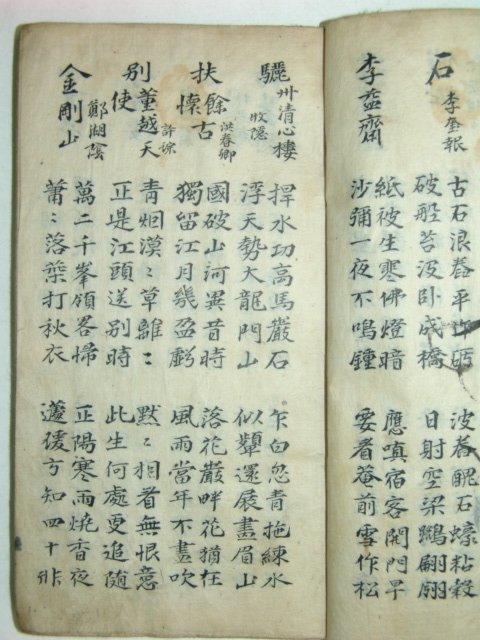 石
李奎報
古石浪舂平
破船苔没卧成橋
波舂石蠔粘殼
日射空梁
李益齋
紙被生寒佛燈暗
沙彌一夜不鳴鍾
應嗔宿客開門早
要看菴前雪作松
驪州清心樓
牧隱
捍水功高馬巖石
浮天勢大龍門山
乍白忽青拖練水
似顰還展畫眉山
扶餘懷古
洪春卿
國破山河異昔時
獨留江月幾盈虧
落花巖畔花猶在
風雨當年不盡吹
别董越天使
許琮
青烟漠〻草離〻
正是江頭送别時
默〻相看無恨意
此生何處更追随
金剛山
鄭湖陰
萬二千峯領畧歸
蕭〻落葉打秋衣
正陽寒雨燒香夜
蘧瑗方知四十非